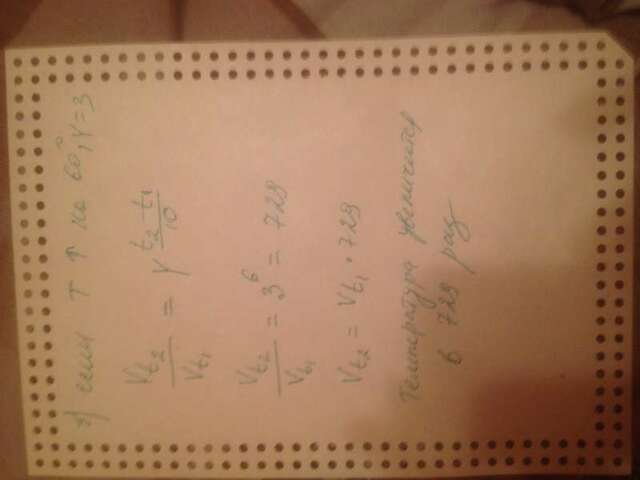 г) если T ↑ на 60°, γ=3
Vt₂/Vt₁ = γ^((t₂-t₁)/10)
Vt₂/Vt₁ = 3⁶ = 729
Vt₂ = Vt₁ · 729
Температура увеличится
в 729 раз